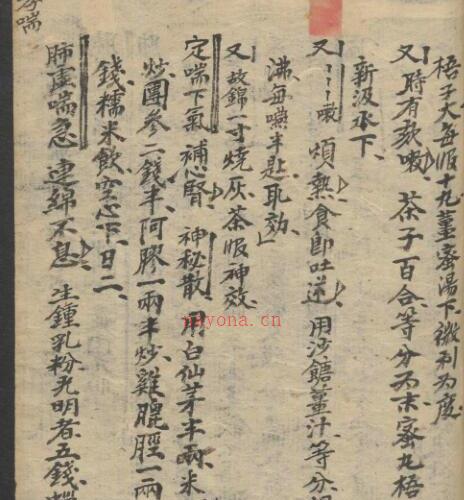 喘
梧子大每服十九薑蜜湯下微利为度
又時有欬嗽 茶子百合等分为末蜜丸梧
新汲水下
又 嗽 煩熱食即吐逆 用沙餹薑汁等分
沸每嚥半匙取効
又 故錦一寸燒灰茶服神效
定喘下氣 補心腎 神秘散 用白仙茅半兩米
炒團參二錢半阿膠一兩半炒雞膍胵一兩
錢糯米飲空心下日二
肺虛喘急 連綿不息 生鍾乳粉光明者五錢蠟
nayona.cn